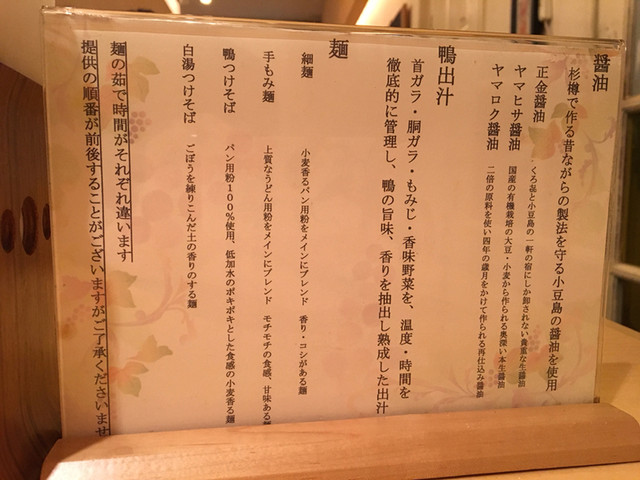 醤油
杉樽で作る昔ながらの製法を守る小豆島の醤油を使用
正金醤油 くろ㐂と小豆島の一軒の宿にしか卸されない貴重な生醤油
ヤマヒサ醤油 国産の有機栽培の大豆・小麦から作られる奥深い本生醤油
ヤマロク醤油 二倍の原料を使い四年の歳月をかけて作られる再仕込み醤油
鴨出汁
首ガラ・胴ガラ・もみじ・香味野菜を、温度・時間を
徹底的に管理し、鴨の旨味、香りを抽出し熟成した出汁
麺
細麺 小麦香るパン用粉をメインにブレンド 香り・コシがある麺
手もみ麺 上質なうどん用粉をメインにブレンド モチモチの食感、甘味ある
鴨つけそば パン用粉100%使用、低加水のボキボキとした食感の小麦香る麺
白湯つけそば ごぼうを練りこんだ土の香りのする麺
麺の茹で時間がそれぞれ違います
提供の順番が前後することがございますがご了承くださいませ